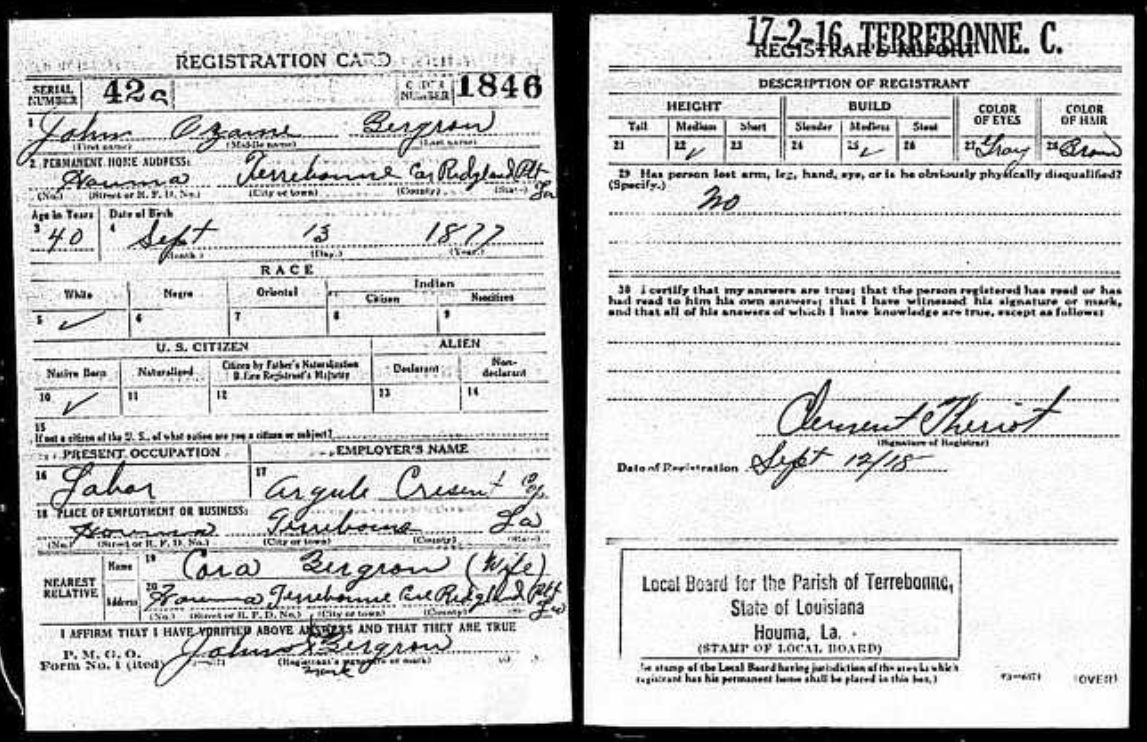 REGISTRATION CARD
SERIAL NUMBER 42
ORDER NUMBER 1846
1 John Ozame Bergron
(First name) (Middle name) (Last name)
2 PERMANENT HOME ADDRESS:
Houma Terrebonne Co Ridgland Plt La
(No.) (Street or R. F. D. No.) (City or town) (County) (State)
Age in Years Date of Birth
3 40 4 Sept 13 1877
(Month.) (Day.) (Year.)
RACE
White Negro Oriental Indian
Citizen Noncitizen
5 ✓ 6 7 8 9
U. S. CITIZEN ALIEN
Native Born Naturalized Citizen by Father's Naturalization Before Registrant's Majority Declarant Non-declarant
10 ✓ 11 12 13 14
15
If not a citizen of the U. S., of what nation are you a citizen or subject?
PRESENT OCCUPATION EMPLOYER'S NAME
16 Labor 17 Argule Cresent Co.
18 PLACE OF EMPLOYMENT OR BUSINESS:
Houma Terrebonne La
(No.) (Street or R. F. D. No.) (City or town) (County) (State)
NEAREST RELATIVE
Name 19 Cora Bergron (Wife)
Address 20 Houma Terrebonne Ridgland Plt La
(No.) (Street or R. F. D. No.) (City or town) (County)
I AFFIRM THAT I HAVE VERIFIED ABOVE ANSWERS AND THAT THEY ARE TRUE
P. M. G. O.
Form No. 1 (Red) John X Bergron
(Registrant's signature or mark)
mark
17-2-16, TERREBONNE. C.
REGISTRAR'S REPORT
DESCRIPTION OF REGISTRANT
HEIGHT BUILD COLOR OF EYES COLOR OF HAIR
Tall Medium Short Slender Medium Stout
21 22 ✓ 23 24 25 ✓ 26 27 Gray 28 Brown
29 Has person lost arm, leg, hand, eye, or is he obviously physically disqualified?
(Specify.)
No
30 I certify that my answers are true; that the person registered has read or has
had read to him his own answers; that I have witnessed his signature or mark,
and that all of his answers of which I have knowledge are true, except as follows:
Clement Theriot
(Signature of Registrar)
Date of Registration Sept 12/18
Local Board for the Parish of Terrebonne,
State of Louisiana
Houma, La.
(STAMP OF LOCAL BOARD)
The stamp of the Local Board having jurisdiction of the area in which
registrant has his permanent home shall be placed in this box.)
(OVER)